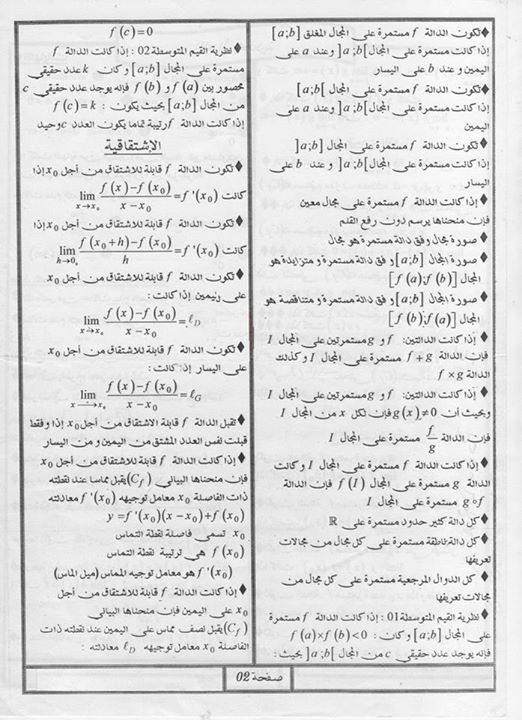 ♦ تكون الدالة f مستمرة على المجال المغلق [a;b]
إذا كانت الدالة f مستمرة على المجال ]a;b[ و عند a على
اليمين و عند b على اليسار
♦ تكون الدالة f مستمرة على المجال [a;b[
إذا كانت الدالة f مستمرة على المجال ]a;b[ و عند a على
اليمين
♦ تكون الدالة f مستمرة على المجال ]a;b]
إذا كانت الدالة f مستمرة على المجال ]a;b[ و عند b على
اليسار
♦ إذا كانت الدالة f مستمرة على مجال معين
فإن منحناها يرسم دون رفع القلم
♦ صورة مجال وفق دالة مستمرة هو مجال
♦ صورة المجال [a;b] و فق دالة مستمرة و متزايدة هو
المجال [f(a);f(b)]
♦ صورة المجال [a;b] و فق دالة مستمرة و متناقصة هو
المجال [f(b);f(a)]
♦ إذا كانت الدالتين: f و g مستمرتين على المجال I
فإن الدالة f+g مستمرة على المجال I و كذلك
الدالة f×g
♦ إذا كانت الدالتين: f و g مستمرتين على المجال I
وبحيث أن g(x)≠0 فإن لكل x من المجال I
فإن الدالة f/g مستمرة على المجال I
♦ إذا كانت الدالة f مستمرة على المجال I وكانت
الدالة g مستمرة على المجال f(I) فإن الدالة
g∘f مستمرة على المجال I
♦ كل دالة كثير حدود مستمرة على ℝ
♦ كل دالة ناطقة مستمرة على كل مجال من مجالات
تعريفها
♦ كل الدوال المرجعية مستمرة على كل مجال من
مجالات تعريفها
♦ نظرية القيم المتوسطة 01: إذا كانت الدالة f مستمرة
على المجال [a;b] و كان: f(a)×f(b)<0
فإنه يوجد عدد حقيقي c من المجال ]a;b[ بحيث:
f(c)=0
♦ نظرية القيم المتوسطة 02: إذا كانت الدالة f
مستمرة على المجال [a;b] و كان k عدد حقيقي
محصور بين f(a) و f(b) فإنه يوجد عدد حقيقي c
من المجال [a;b] بحيث يكون: f(c)=k
إذا كانت الدالة f رتيبة تماما يكون العدد c وحيد
الإشتقاقية
♦ تكون الدالة f قابلة للاشتقاق من أجل x₀ إذا
كانت lim x→x₀ (f(x)-f(x₀))/(x-x₀) = f'(x₀)
♦ تكون الدالة f قابلة للاشتقاق من أجل x₀ إذا
كانت lim h→0 (f(x₀+h)-f(x₀))/h = f'(x₀)
♦ تكون الدالة f قابلة للاشتقاق من أجل x₀
على اليمين إذا كانت:
lim x→x₀ (f(x)-f(x₀))/(x-x₀) = ℓD
♦ تكون الدالة f قابلة للاشتقاق من أجل x₀
على اليسار إذا كانت:
lim x→x₀ (f(x)-f(x₀))/(x-x₀) = ℓG
♦ تقبل الدالة f قابلة الاشتقاق من أجل x₀ إذا و فقط
قبلت نفس العدد المشتق من اليمين و من اليسار
♦ إذا كانت الدالة f قابلة للاشتقاق من أجل x₀
فإن منحناها البياني (Cf) يقبل مماسا عند نقطته
ذات الفاصلة x₀ معامل توجيهه f'(x₀) معادلته
y=f'(x₀)(x-x₀)+f(x₀)
x₀ تسمى فاصلة نقطة التماس
f(x₀) هي ترتيبة نقطة التماس
f'(x₀) هو معامل توجيه المماس (ميل المماس)
♦ إذا كانت الدالة f قابلة للاشتقاق من أجل
x₀ على اليمين فإن منحناها البياني
(Cf) يقبل نصف مماس على اليمين عند نقطته ذات
الفاصلة x₀ معامل توجيهه ℓD معادلته:
صفحة 02